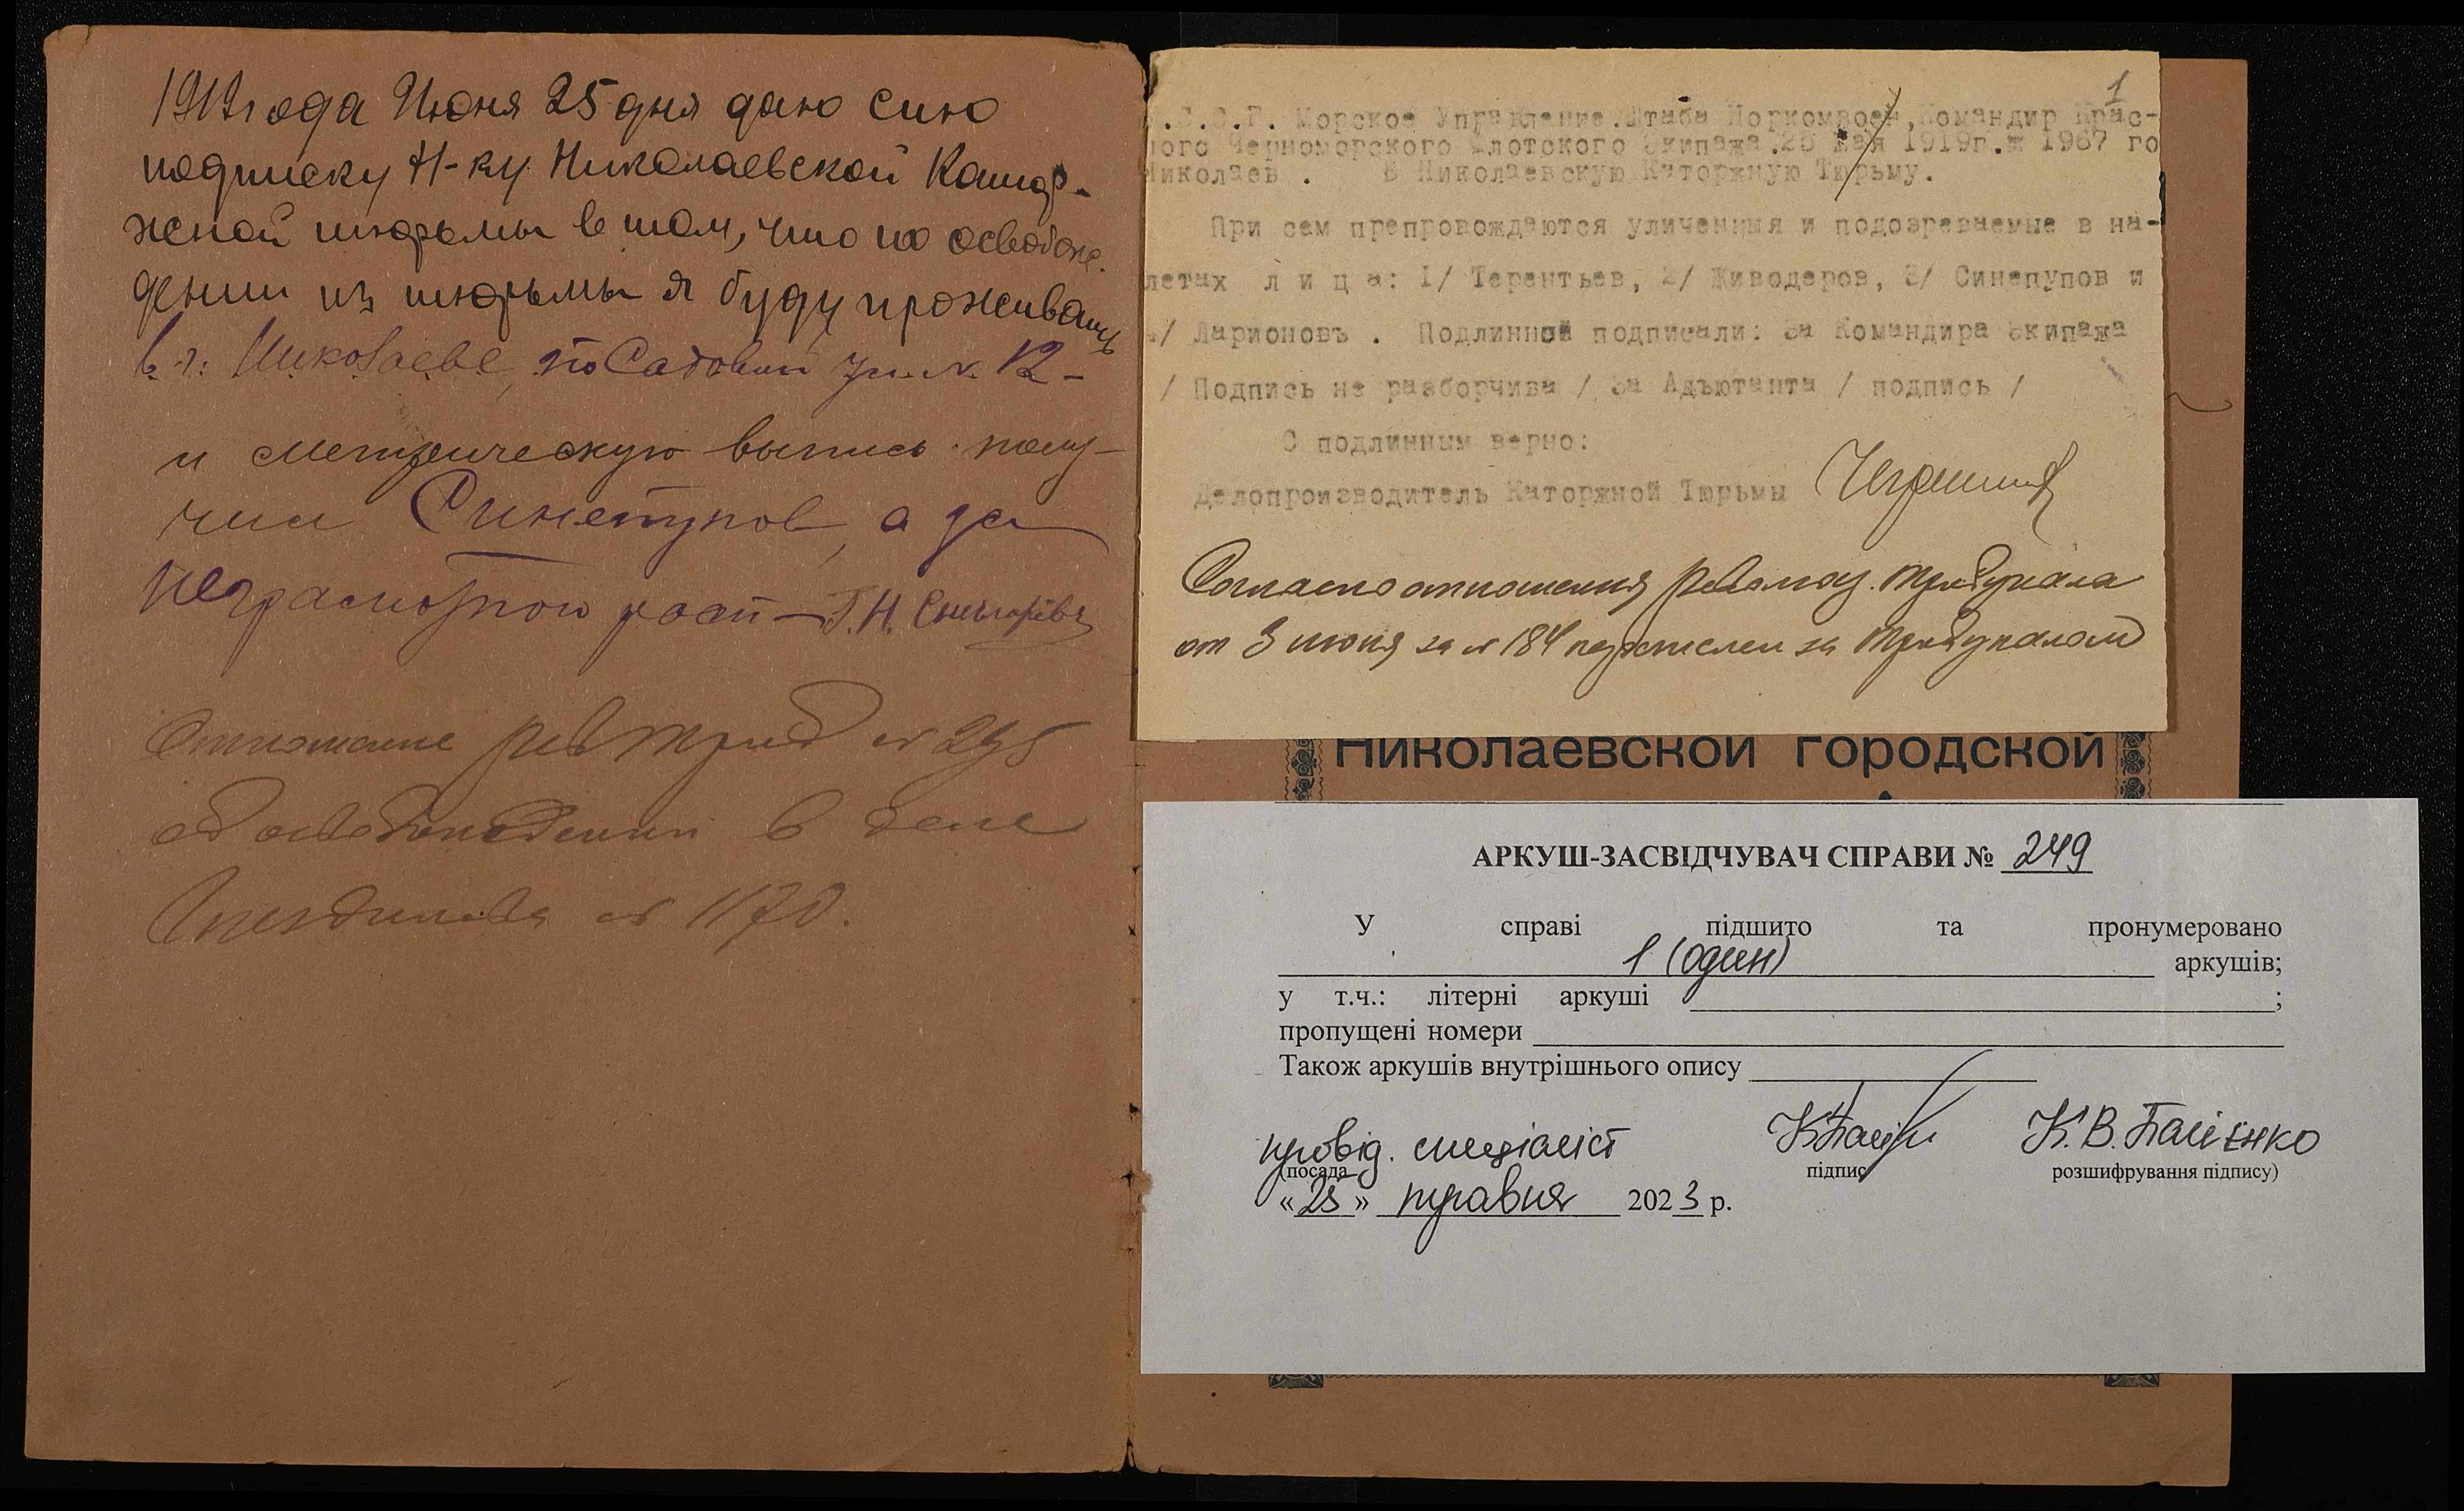 1919 года Июня 25 дня даю сию
подписку Н-ку Николаевской Катор-
жной тюрьмы в том, что по освобож-
дении из тюрьмы я буду проживать
в г. Николаеве, по Садовой ул. № 12-
и метрическую выпись полу-
чил Синепупов, а за
неграмотного росп-
Отношение рев триб № 295
об освобождении в деле
№ 1170.
1
.С.С.Р. Морское Управление.Штаба Норкомвоен,Командир Крас-
ного Черноморского Флотского Экипажа.28 Мая 1919г.№ 1967 го
Николаев . В Николаевскую Каторжную Тюрьму.
При сем препровождаются уличенныя и подозреваемые в на-
летах л и ц а: 1/ Терентьев, 2/ Живодеров, 3/ Синепупов и
4/ Ларионовъ . Подлинной подписали: За Командира Экипажа
/ Подпись не разборчива / За Адъютанта / подпись /
С подлинным верно:
Делопроизводитель Каторжной Тюрьмы
Согласно отношения Революц. трибунала
от 3 июня за № 184 перечислен за трибуналом
Николаевской городской
АРКУШ-ЗАСВІДЧУВАЧ СПРАВИ № 249
У справі підшито та пронумеровано
1 (один) аркушів;
у т.ч.: літерні аркуші ;
пропущені номери
Також аркушів внутрішнього опису
провід. спеціаліст К.В. Палієнко
(посада підпис розшифрування підпису)
«25» травня 2023 р.